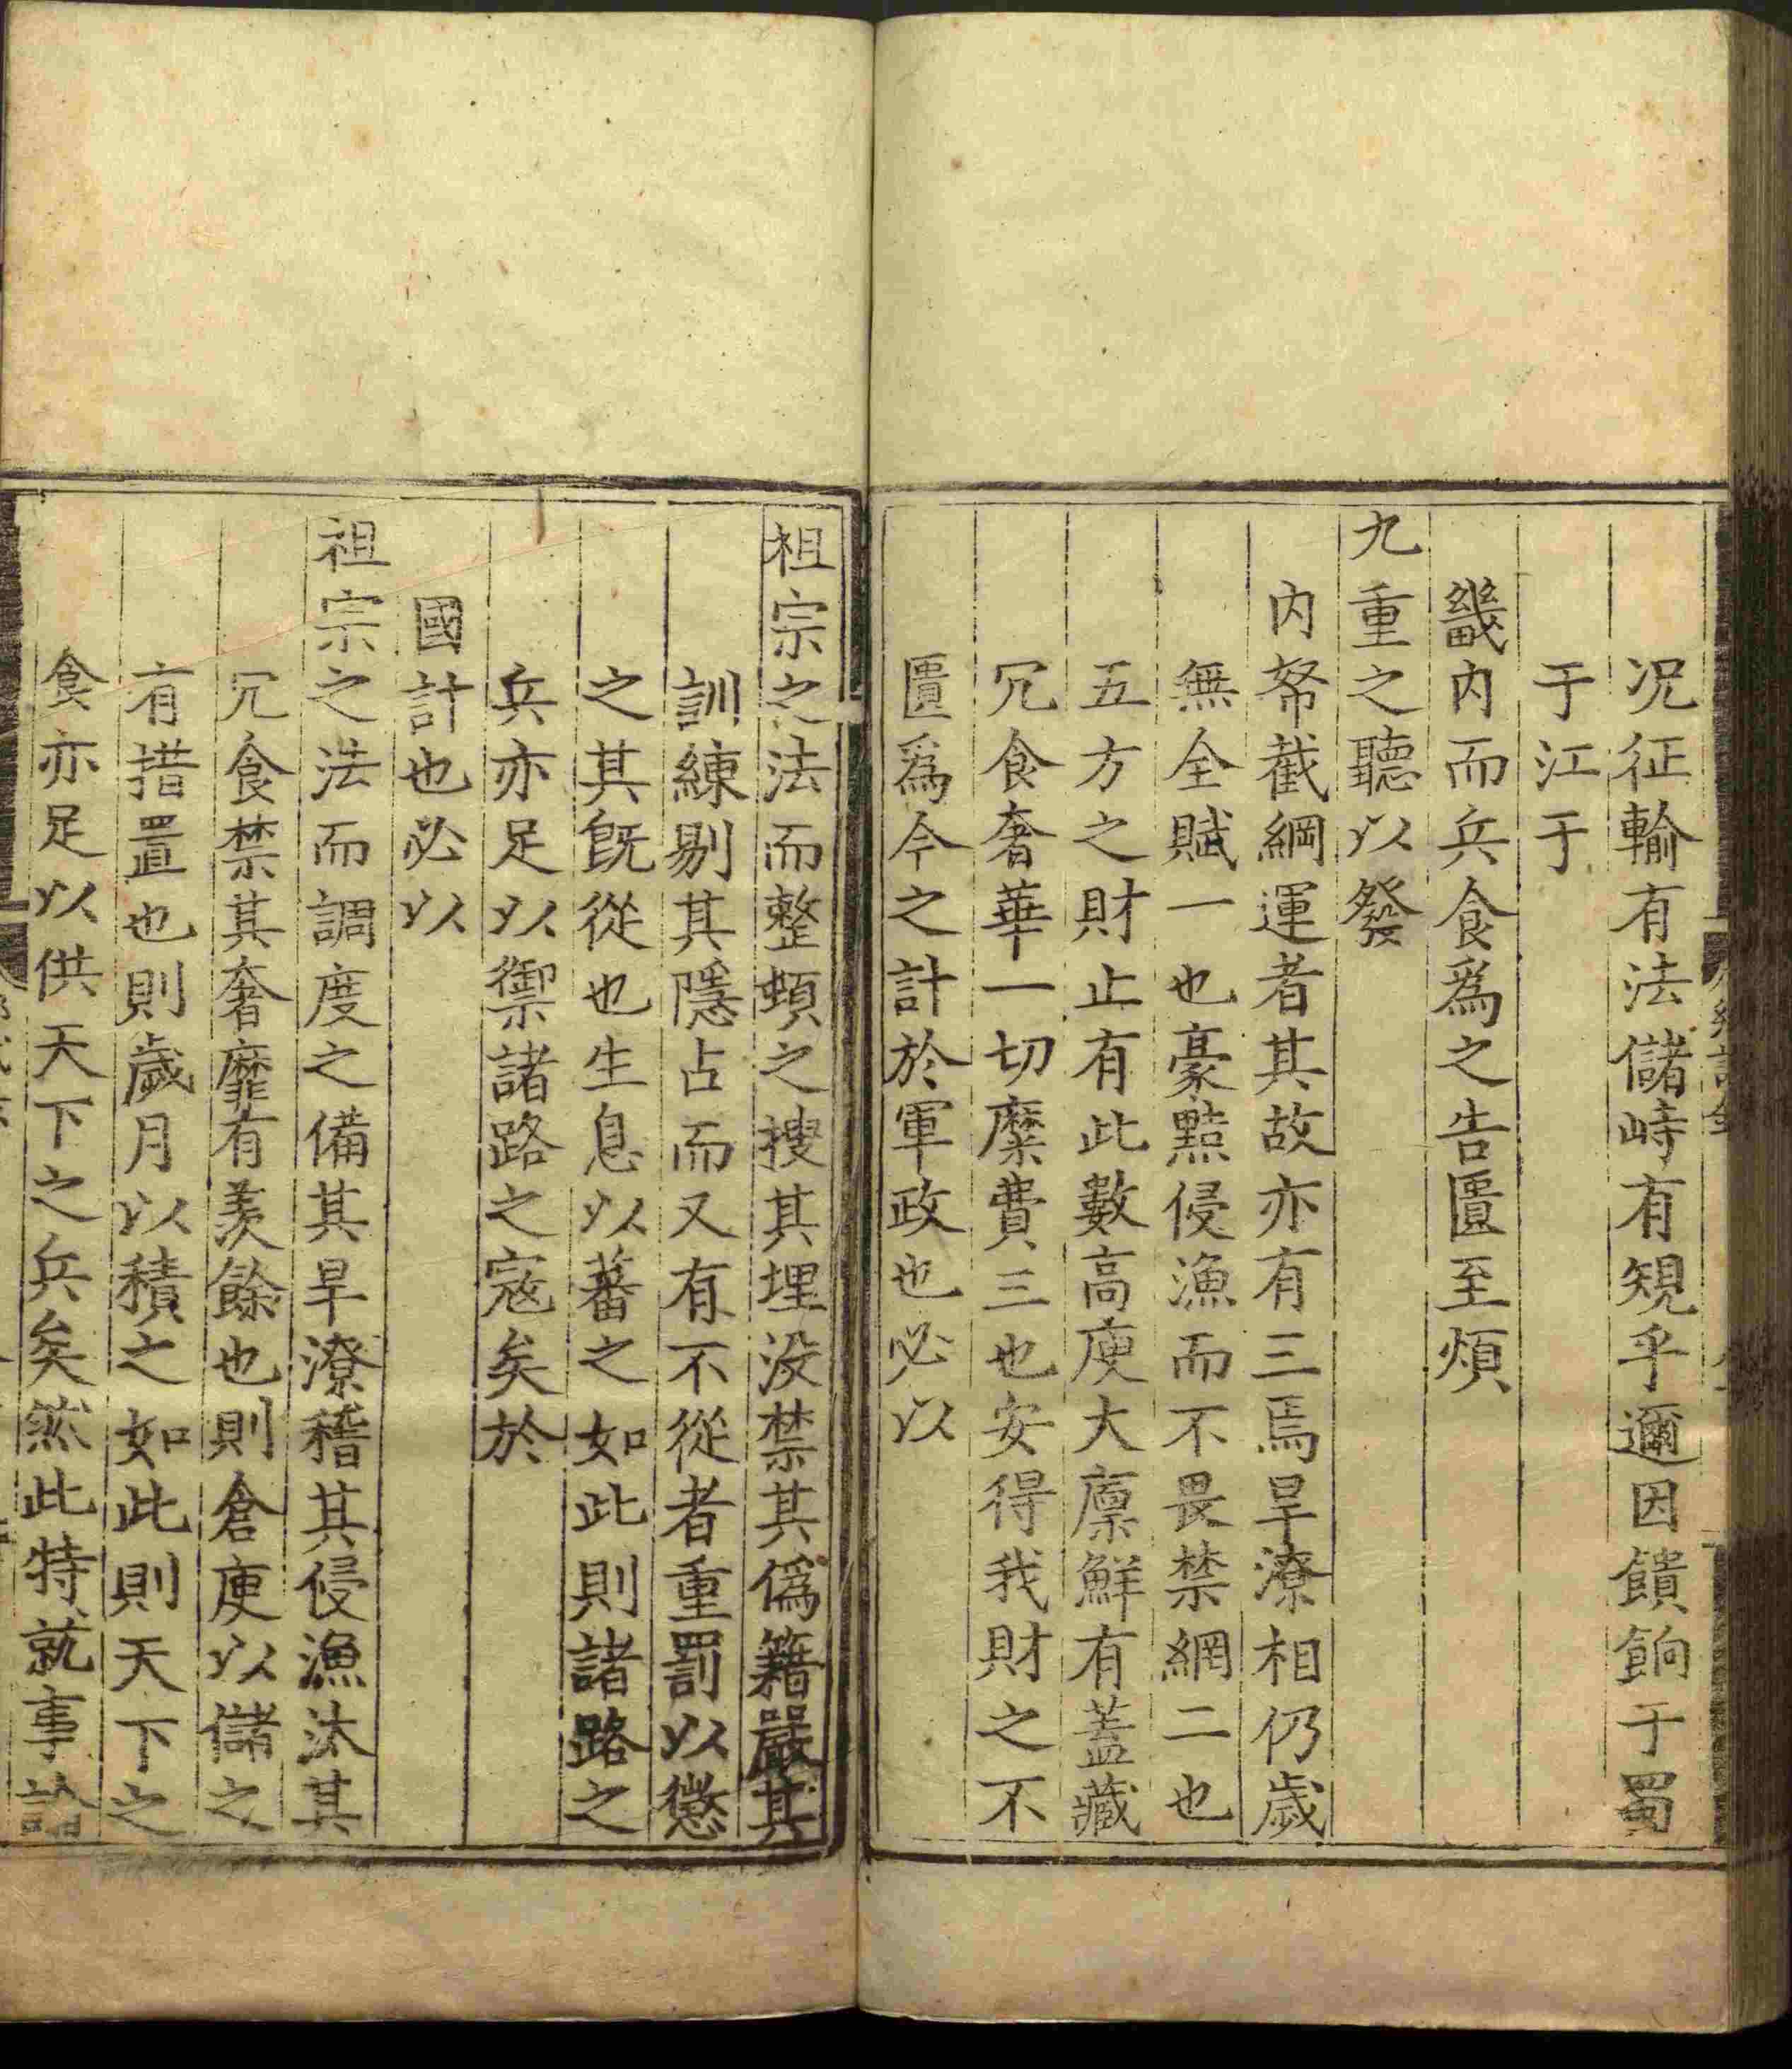 况征輸有法儲峙有規乎邇因饋餉于蜀
于江于
畿内而兵食爲之告匱至煩
九重之聽以發
内帑截綱運者其故亦有三焉旱潦相仍歲
無全賦一也豪黠侵漁而不畏禁網二也
五方之財止有此數高庾大廪鮮有蓋藏
冗食奢華一切糜費三也安得我財之不
匱爲今之計於軍政也必以
祖宗之法而整頓之搜其埋没禁其偽籍嚴其
訓練剔其隱占而又有不從者重罰以懲
之其旣從也生息以蕃之如此則諸路之
兵亦足以禦諸路之寇矣於
國計也必以
祖宗之法而調度之備其旱潦稽其侵漁汰其
冗食禁其奢靡有羡餘也則倉庾以儲之
有措置也則歲月以積之如此則天下之
食亦足以供天下之兵矣然此特就事論